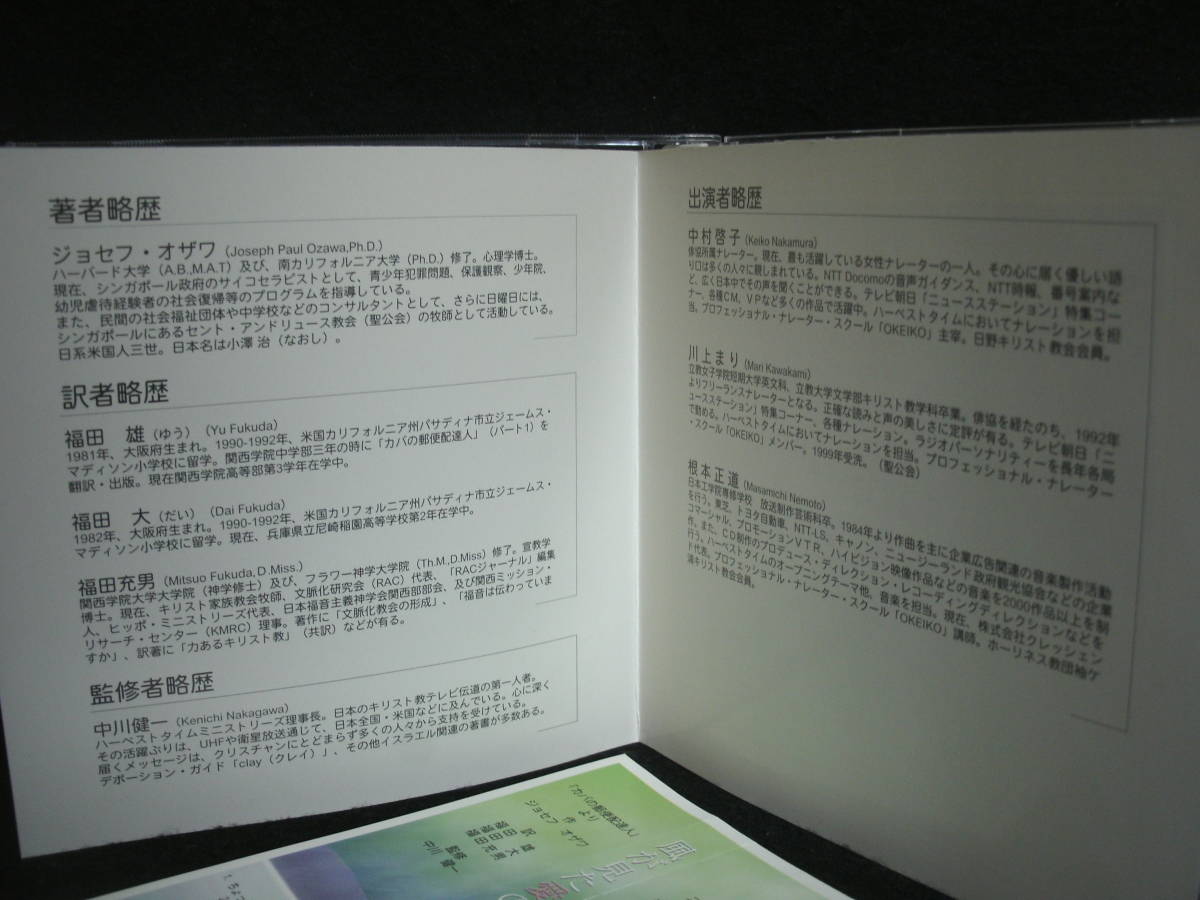 著者略歴
ジョセフ・オザワ (Joseph Paul Ozawa,Ph.D.)
ハーバード大学 (A.B.,M.A.T) 及び、南カリフォルニア大学 (Ph.D.) 修了。心理学博士。
現在、シンガポール政府のサイコセラピストとして、青少年犯罪問題、保護観察、少年院、
幼児虐待経験者の社会復帰等のプログラムを指導している。
また、民間の社会福祉団体や中学校などのコンサルタントとして、さらに日曜日には、
シンガポールにあるセント・アンドリュース教会(聖公会)の牧師として活動している。
日系米国人三世。日本名は小澤 治(なおし)。
訳者略歴
福田 雄(ゆう) (Yu Fukuda)
1981年、大阪府生まれ。1990-1992年、米国カリフォルニア州パサディナ市立ジェームス・
マディソン小学校に留学。関西学院中学部三年の時に「カバの郵便配達人」(パート1)を
翻訳・出版。現在関西学院高等部第3学年在学中。
福田 大(だい) (Dai Fukuda)
1982年、大阪府生まれ。1990-1992年、米国カリフォルニア州パサディナ市立ジェームス・
マディソン小学校に留学。現在、兵庫県立尼崎稲園高等学校第2年在学中。
福田充男 (Mitsuo Fukuda, D.Miss.)
関西学院大学大学院(神学修士)及び、フラワー神学大学院(Th.M.,D.Miss)修了。宣教学
博士。現在、キリスト家族教会牧師、文脈化研究会(RAC)代表、「RACジャーナル」編集
人、ヒッポ・ミニストリーズ代表、日本福音主義神学会関西部部会、及び関西ミッション・
リサーチ・センター(KMRC)理事。著作に「文脈化教会の形成」、「福音は伝わっていま
すか」、訳著に「力あるキリスト教」(共訳)などが有る。
監修者略歴
中川健一 (Kenichi Nakagawa)
ハーベストタイムミニストリーズ理事長。日本のキリスト教テレビ伝道の第一人者。
その活躍ぶりは、UHFや衛星放送通じて、日本全国・米国などに及んでいる。心に深く
届くメッセージは、クリスチャンにとどまらず多くの人々から支持を受けている。
デボーション・ガイド「clay(クレイ)」、その他イスラエル関連の著書が多数ある。
出演者略歴
中村啓子 (Keiko Nakamura)
俳協所属ナレーター。現在、最も活躍している女性ナレーターの一人。その心に届く優しい語
り口は多くの人々に親しまれている。NTT Docomoの音声ガイダンス、NTT時報、番号案内な
ど、広く日本中でその声を聞くことができる。テレビ朝日「ニュースステーション」特集コー
ナー、各種CM、VPなど多くの作品で活躍中。ハーベストタイムにおいてナレーションを担
当。プロフェッショナル・ナレーター・スクール「OKEIKO」主宰。日野キリスト教会会員。
川上まり (Mari Kawakami)
立教女子学院短期大学英文科、立教大学文学部キリスト教学科卒業。俳協を経たのち、1992年
よりフリーランスナレーターとなる。正確な読みと声の美しさに定評が有る。テレビ朝日「ニ
ュースステーション」特集コーナー、各種ナレーション。ラジオパーソナリティーを長年各局
で勤める。ハーベストタイムにおいてナレーションを担当。プロフェッショナル・ナレーター
・スクール「OKEIKO」メンバー。1999年受洗。(聖公会)
根本正道 (Masamichi Nemoto)
日本工学院専修学校 放送制作芸術科卒。1984年より作曲を主に企業広告関連の音楽製作活動
を行う。東芝、トヨタ自動車、NTT-LS、キャノン、ニュージーランド政府観光協会などの企業
コマーシャル、プロモーションVTR、ハイビジョン映像作品などの音楽を2000作品以上を制
作。また、CD制作のプロデュース・ディレクション・レコーディングディレクションなどを
行う。ハーベストタイムのオープニングテーマ他、音楽を担当。現在、株式会社クレッシェン
ド代表。プロフェッショナル・ナレーター・スクール「OKEIKO」講師。ホーリネス教団袖ケ
浦キリスト教会会員。
「カバの郵便配達人」
より
作
ジョセフ オザワ
訳
福田 雄
福田 大
福田 充男
監修
中川 健一
風が見た愛
1. ちょっ